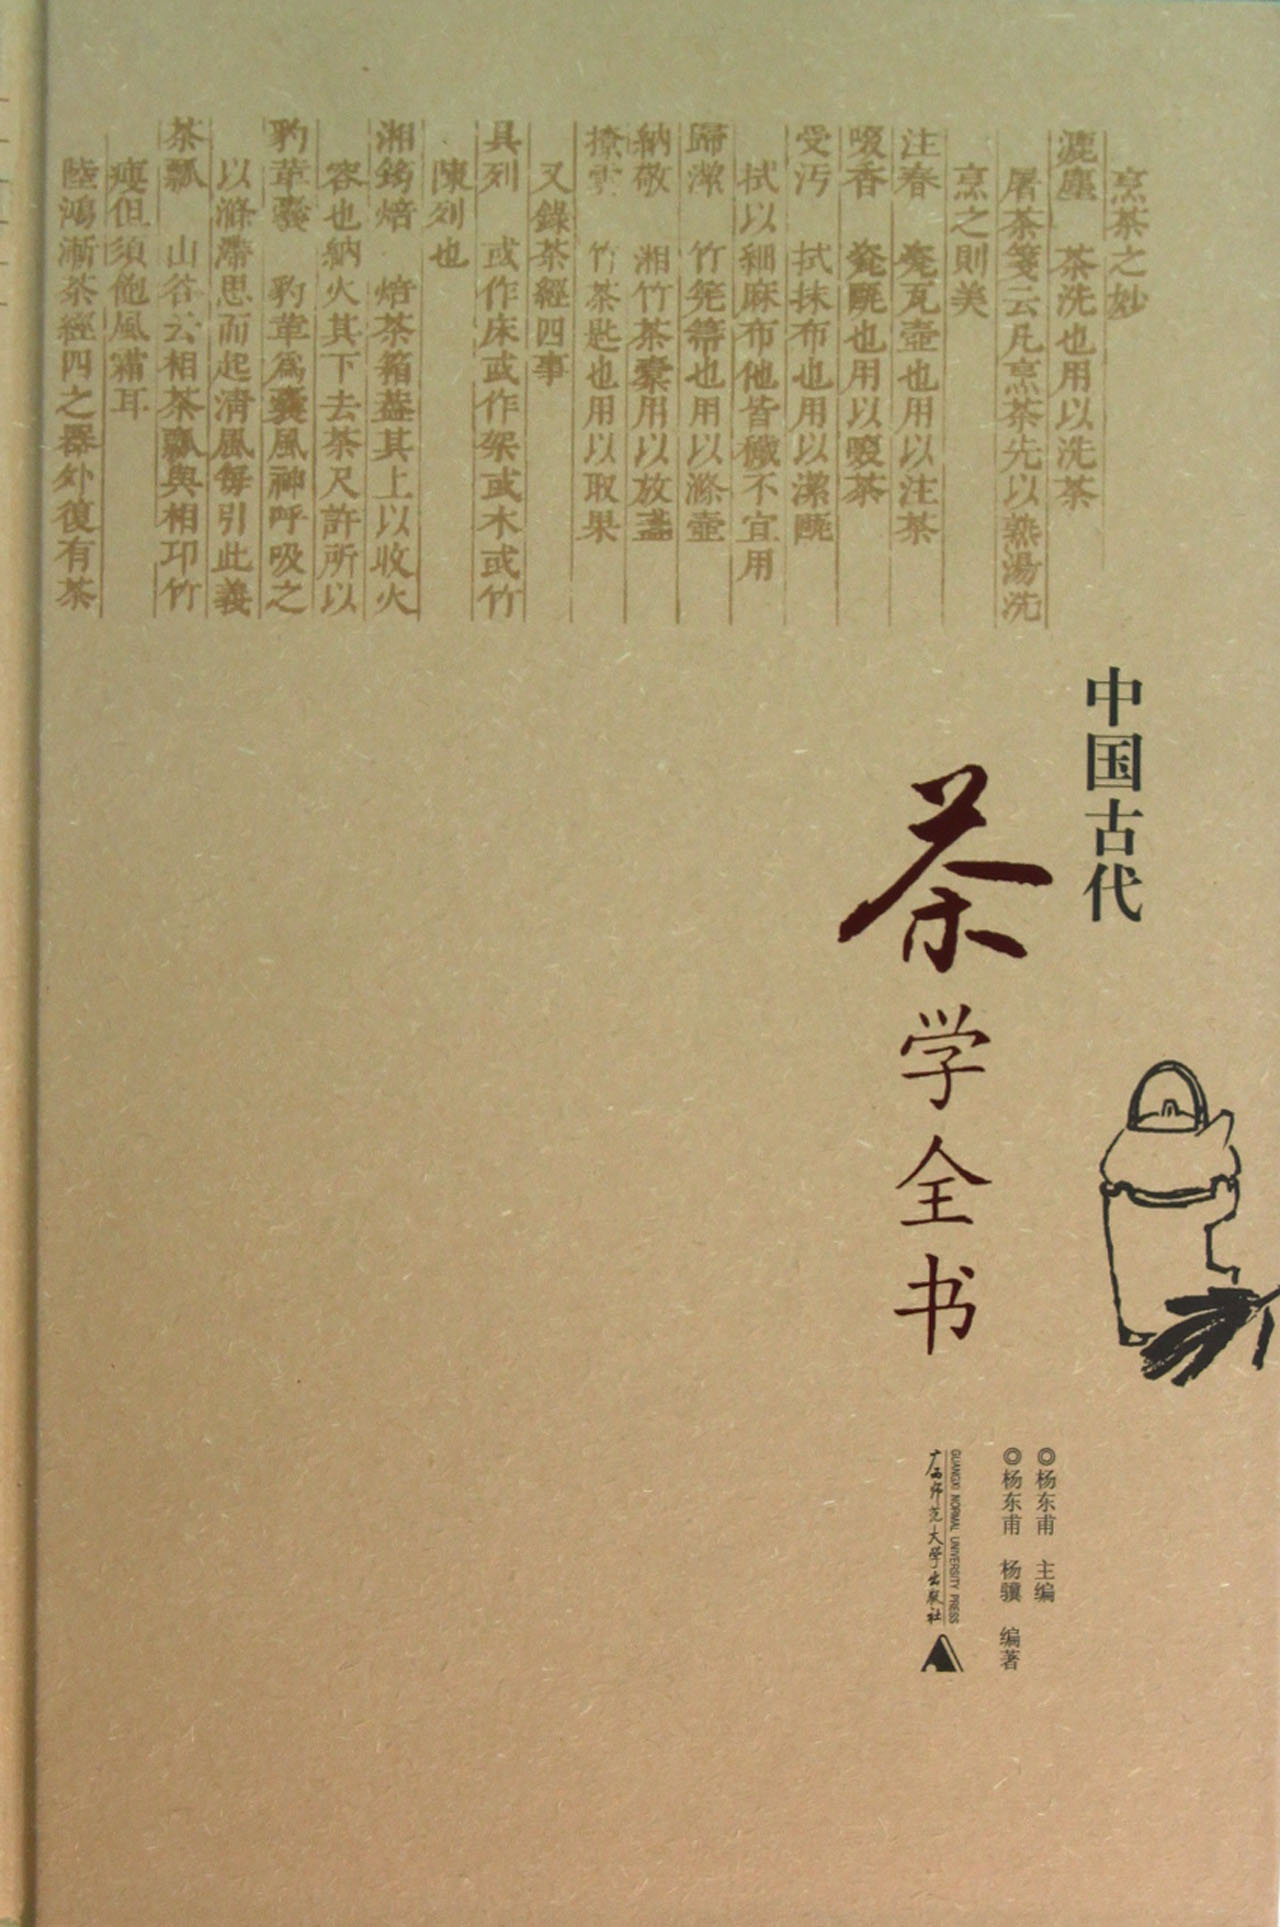 烹茶之妙
漉塵　茶洗也用以洗茶
屠茶箋云凡烹茶先以熟湯洗
烹之則美
注春　甆瓦壺也用以注茶
啜香　甆甌也用以啜茶
受汚　拭抹布也用以潔甌
拭以細麻布他皆穢不宜用
歸潔　竹筅箒也用以滌壺
納敬　湘竹茶橐用以放盞
撩雲　竹茶匙也用以取果
又錄茶經四事
具列　或作床或作架或木或竹
陳列也
湘筠焙　焙茶箱葢其上以收火
容也納火其下去茶尺許所以
豹革囊　豹革爲囊風神呼吸之
以滌滯思而起淸風每引此義
茶瓢　山谷云相茶瓢與相邛竹
瘦但須飽風霜耳
陸鴻漸茶經四之器外復有茶
中国古代
茶学全书
◎杨东甫　主编
◎杨东甫　杨骥　编著
GUANGXI NORMAL UNIVERSITY PRESS
广西师范大学出版社